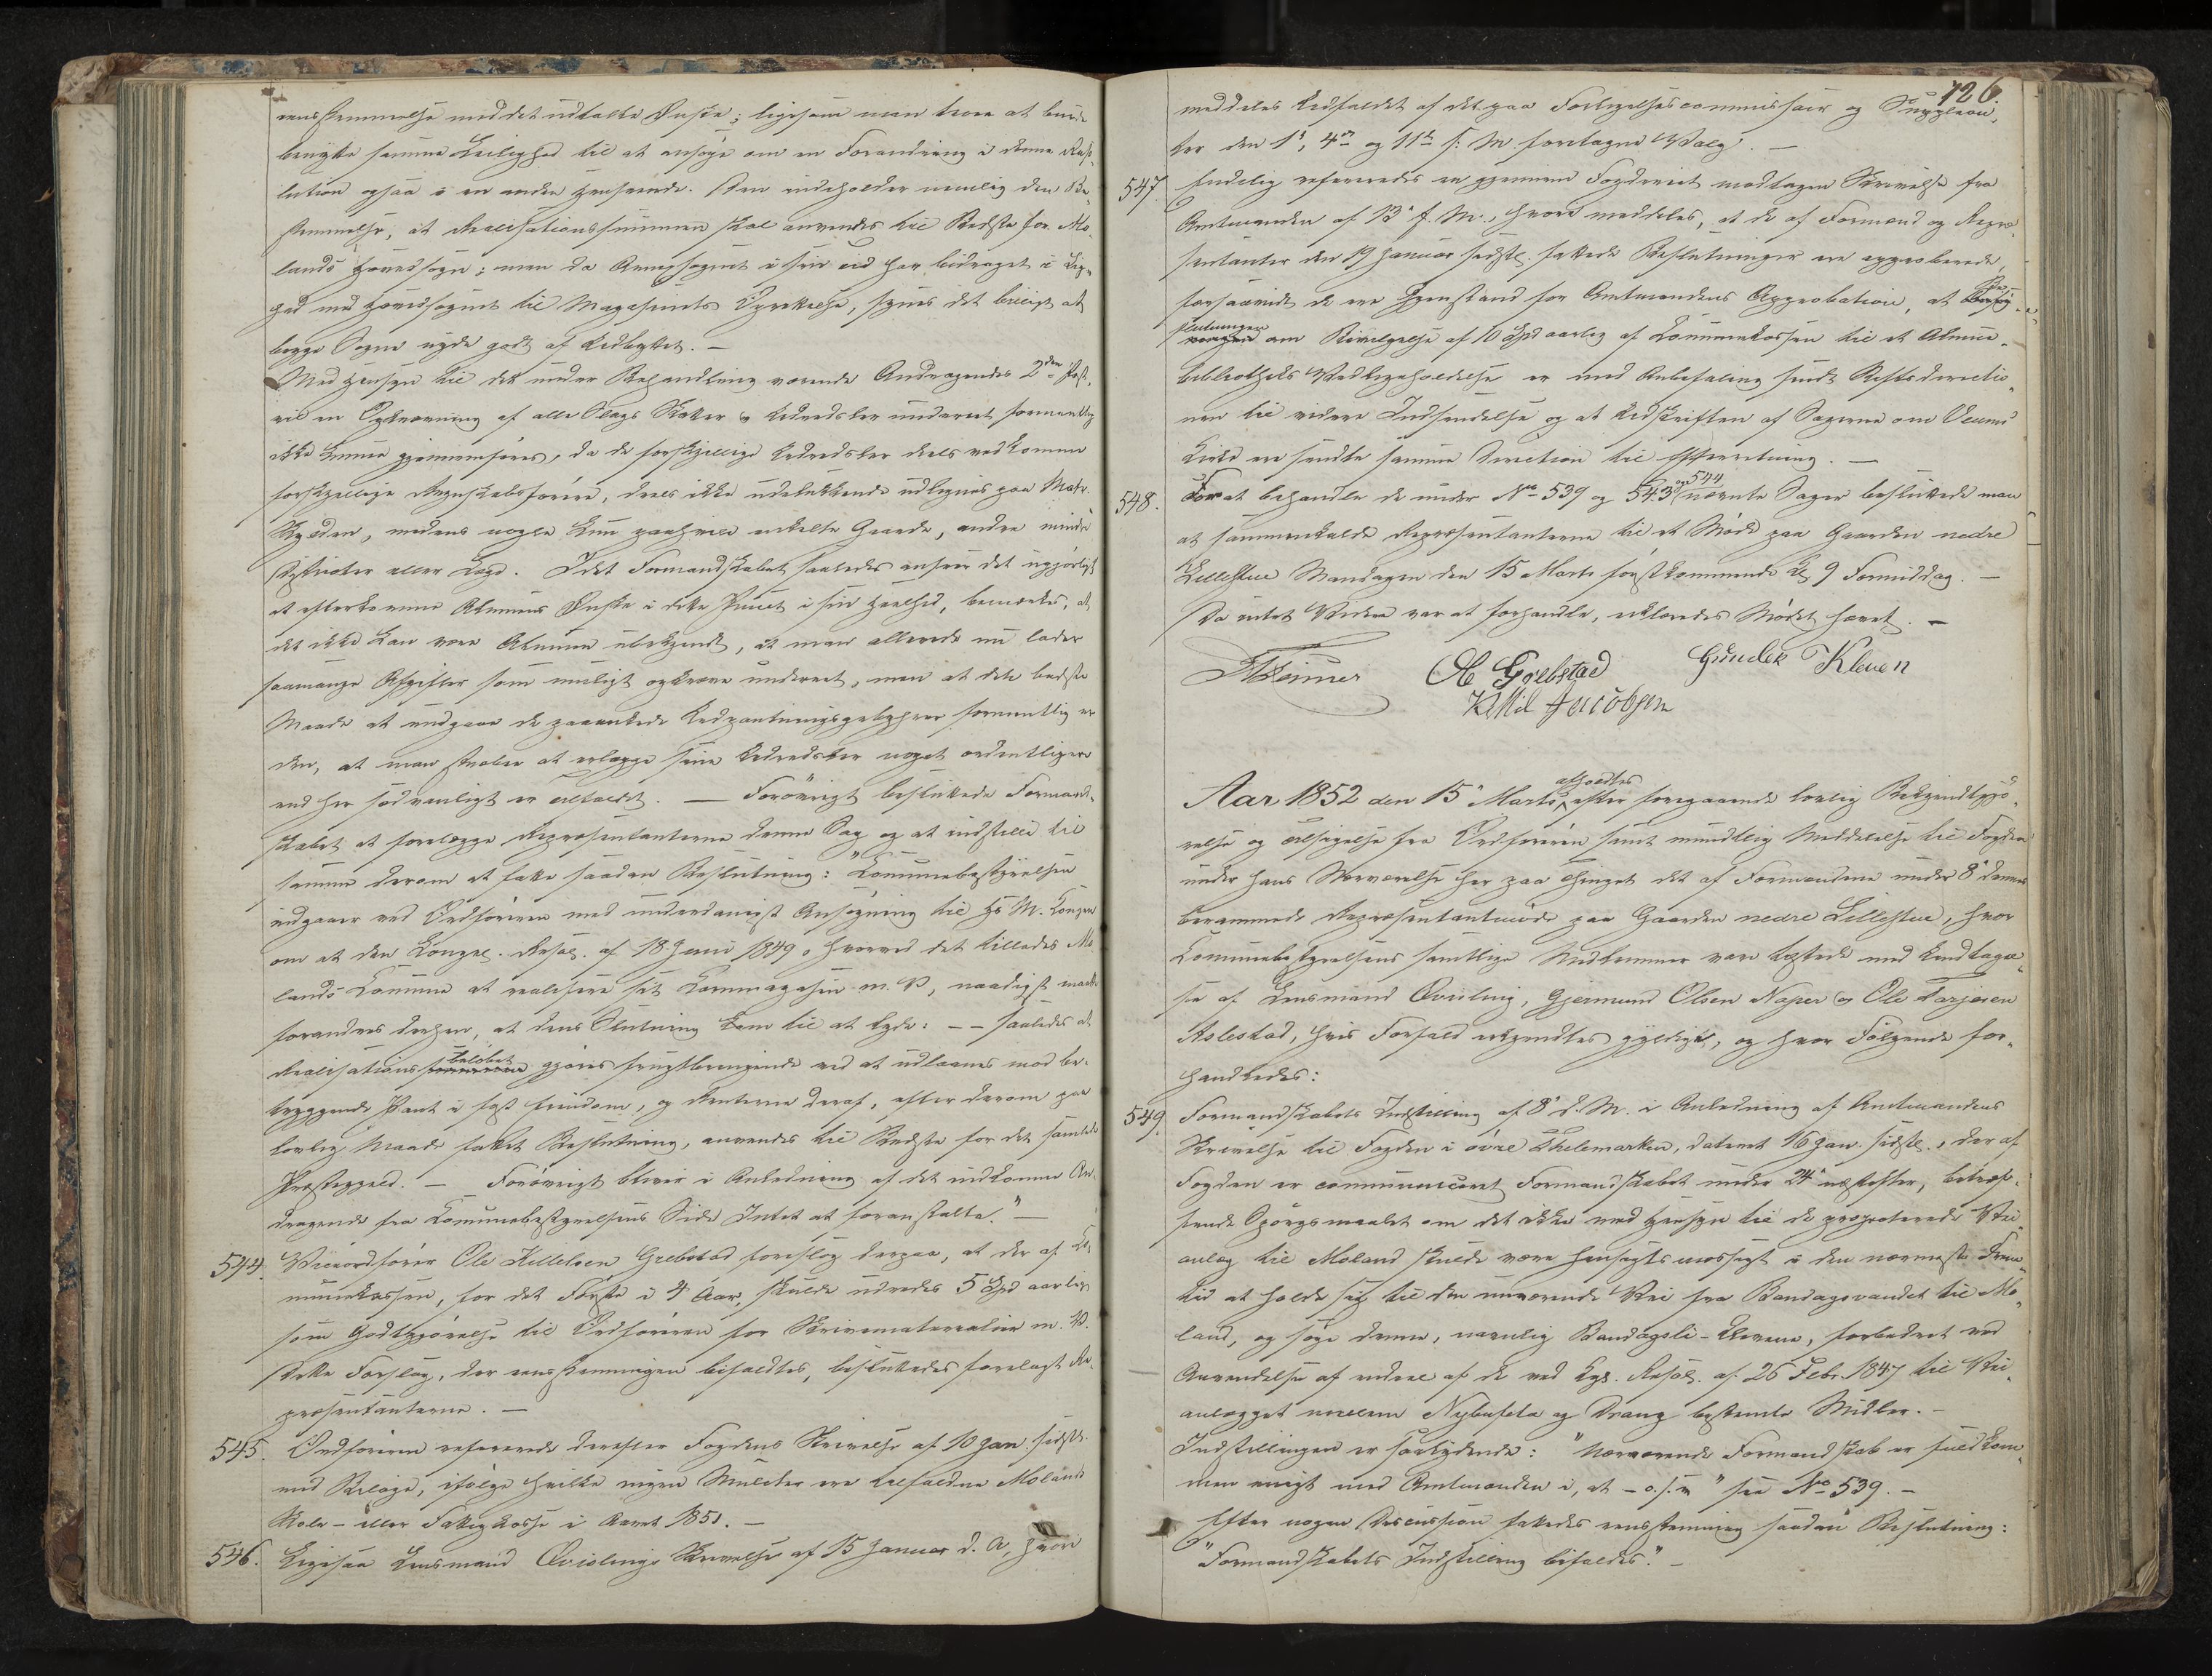 eensstemmelse med det udtalte Ønske; ligesom man troer at burde
benytte samme Leilighed til at ansøge om en Forandring i denne Reso-
lution ogsaa i en anden Henseende. Den indeholder nemlig den Be-
stemmelse, at Realisationssummen skal anvendes til Bedste for Mo-
lands Hovedsogn; men da Annexsognet i sin Tid har bidraget i Lig-
hed med Hovedsognet til Magasinets Oprettelse, synes det billigt at
begge Sogne nyde godt af Udbyttet. —
Med Hensyn til det under Behandling værende Andragendes 2den Post,
vil en Opkrævning af alle Slags Skatter og Udredsler underet formentlig
ikke kunne gjennemføres, da de forskjellige Udredsler deels vedkomme
forskjellige Regnskabsførere, deels ikke udelukkende udlignes paa Matr.
Skylden, medens nogle kun paahvile enkelte Gaarde, andre mindre
Distrikter eller Lægd. Idet Formandskabet saaledes anseer det ugjørligt
at efterkomme Almuens Ønske i dette Punct i sin Heelhed, bemærkes, at
det ikke kan være Almuen ubekjendt, at man allerede nu lader
saamange Afgifter som muligt opkræve underet, men at den bedste
Maade at undgaae de paaankede Udpantningsgebyhrer formentlig er
den, at man stræber at erlægge sine Udredsler noget ordentligere
end her sædvanligt er Tilfældet. — Forøvrigt besluttede Formand-
skabet at forelægge Repræsentanterne denne Sag og at indstille til
samme derom at fatte saadan Beslutning: "Kommunebestyrelsen
indgaaer ved Ordføreren med underdanigst Ansøgning til Hs. M. Kongen
om at den Kongel. Resol. af 18 Juni 1849, hvorved det tillades Mo-
lands Commune at realisere sit Kornmagasin m. V., naadigst maatte
forandres derhen, at dens Slutning kom til at lyde: — — saaledes at
Realisationsbeløbet gjøres frugtbringende ved at udlaanes mod be-
tryggende Pant i fast Eiendom, og Renterne deraf, efter derom paa
lovlig Maade fattet Beslutning, anvendes til Bedste for det samlede
Præstegjeld. — Forøvrigt bliver i Anledning af det indkomne An-
dragende fra Kommunebestyrelsens Side Intet at foranstalte." —
544. Viceordfører Ole Killelsen Grebstad foreslog derpaa, at der af Ko-
munekassen, for det Første i 4 Aar, skulde udredes 5 Spd aarlig
som Godtgjørelse til Ordføreren for Skrivematerialier m. V.
Dette Forslag, der eenstemmigen bifaldtes, besluttedes forelagt Re-
præsentanterne. —
545. Ordføreren refererede derefter Fogdens Skrivelse af 10 Jan. sidstl.
med Bilage, ifølge hvilke ingen Mulcter ere tilfaldne Molands
Skole- eller Fattigkasse i Aaret 1851. —
546. Ligesaa Lensmand Qvislings Skrivelse af 15 Januar d. A., hvori
126.
meddeles Udfaldet af det paa Forligelsescommissair og Supplean-
ter den 1ste, 4de og 11te f. M. foretagne Valg. —
547. Endelig refereredes en gjennem Fogderiet modtagen Skrivelse fra
Amtmanden af 13de f. M., hvori meddeles, at de af Formænd og Repræ-
sentanter den 19 Januar sidstl. fattede Beslutninger ere approberede,
forsaavidt de ere Gjenstand for Amtmandens Approbation, at Be-
slutningen om Bevilgelse af 10 Spd aarlig af Communekassen til et Almue-
bibliotheks Vedligeholdelse er med Anbefaling sendt Stiftsdirectio-
nen til videre Indsendelse og at Udskriften af Sagerne om Veums
Kirke ere sendte samme Direction til Efterretning. —
548. For at behandle de under No 539 og 543 og 544 nævnte Sager besluttede man
at sammenkalde Repræsentanterne til et Møde paa Gaarden nedre
Lillestue Mandagen den 15 Marts førstkommende Kl. 9 Formiddag. —
Da intet Videre var at forhandle, erklæredes Mødet hævet. —
Ole Grebstad Gunleik Kleven
Kittil Jacobsen
Aar 1852 den 15de Marts afholdtes efter foregaaende lovlig Bekjendtgjø-
relse og Tilsigelse fra Ordføreren samt mundtlig Meddelelse til Fogden
under hans Nærværelse her paa Thinget det af Formændene under 8de dennes
berammede Repræsentantmøde paa Gaarden nedre Lillestue, hvor
Kommunebestyrelsens samtlige Medlemmer vare tilstede med Undtagel-
se af Lensmand Qvisling, Gjermund Olsen Naper og Ole Tarjeien
Aslestad, hvis Forfald erkjendtes gyldigt, og hvor Følgende for-
handledes:
549. Formandskabets Indstilling af 8de d. M. i Anledning af Amtmandens
Skrivelse til Fogden i øvre Thelemarken, dateret 16 Jan. sidstl., der af
Fogden er communiceret Formandskabet under 24de næstefter, betræf-
fende Spørgsmaalet om det ikke med Hensyn til de projecterede Vei-
anlæg til Moland skulde være hensigtsmæssigt i den nærmeste Frem-
tid at holde sig til den nuværende Vei fra Bandagsvandet til Mo-
land, og søge denne, navnlig Bandagsli-Klevene, forbedret ved
Anvendelse af endeel af de ved Kgl. Resol. af 26 Febr. 1847 til Vei-
anlægget mellem Nybufeta og Drang bestemte Midler. —
Indstillingen er saalydende: "Nærværende Formandskab er fuldkom-
men enigt med Amtmanden i, at — o. s. v." see No 539. —
Efter nogen Discussion fattedes eenstemmig saadan Beslutning:
"Formandskabets Indstilling bifaldes". —